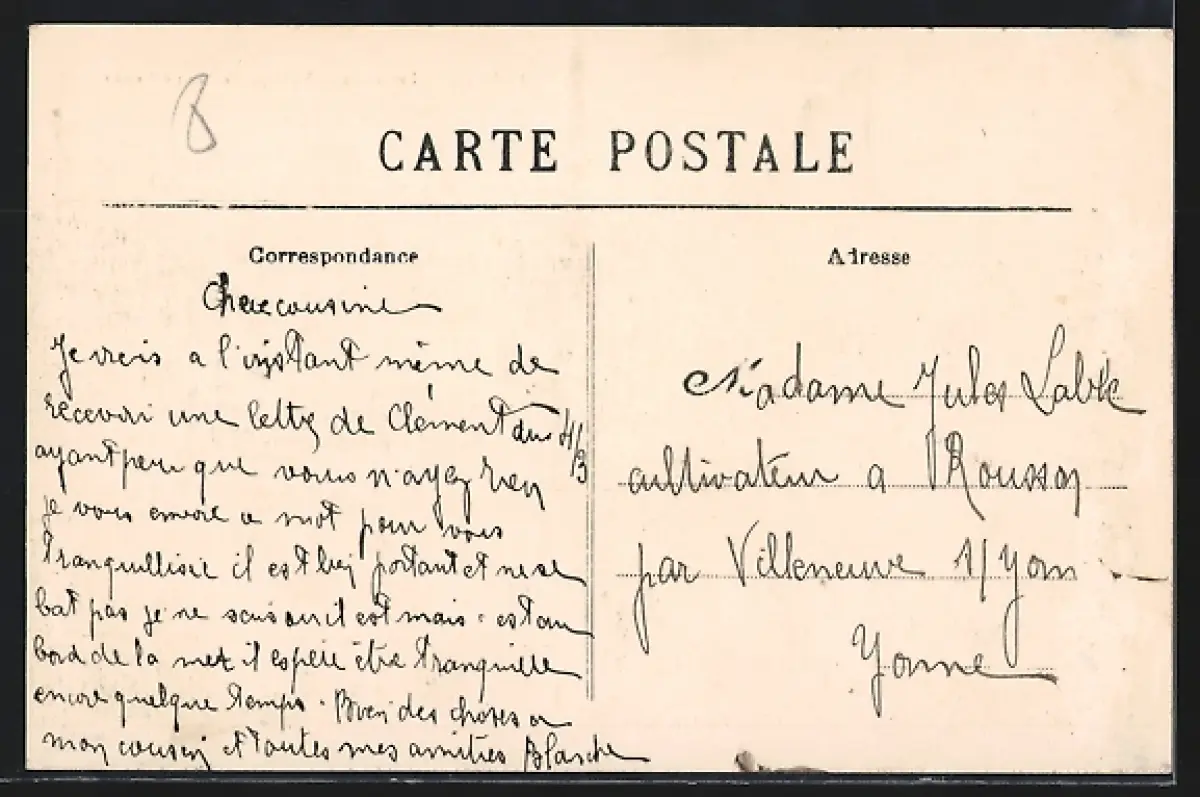 8
CARTE POSTALE
Correspondance
Adresse
Chere cousine
Je vien a l'instant même de
recevoir une lettre de Clément du 4/13
ayant peur que vous n'ayez rien
je vous envoie ce mot pour vous
tranquilliser il est bien portant et ne se
bat pas je ne sais ou il est mais c'est au
bord de la mer il espere être tranquille
encore quelque temps. Bien des choses a
mon cousin et toutes mes amitiés Blanche
Madame Jules Lablé
cultivateur a Rousson
par Villeneuve s/ Yonn
Yonne